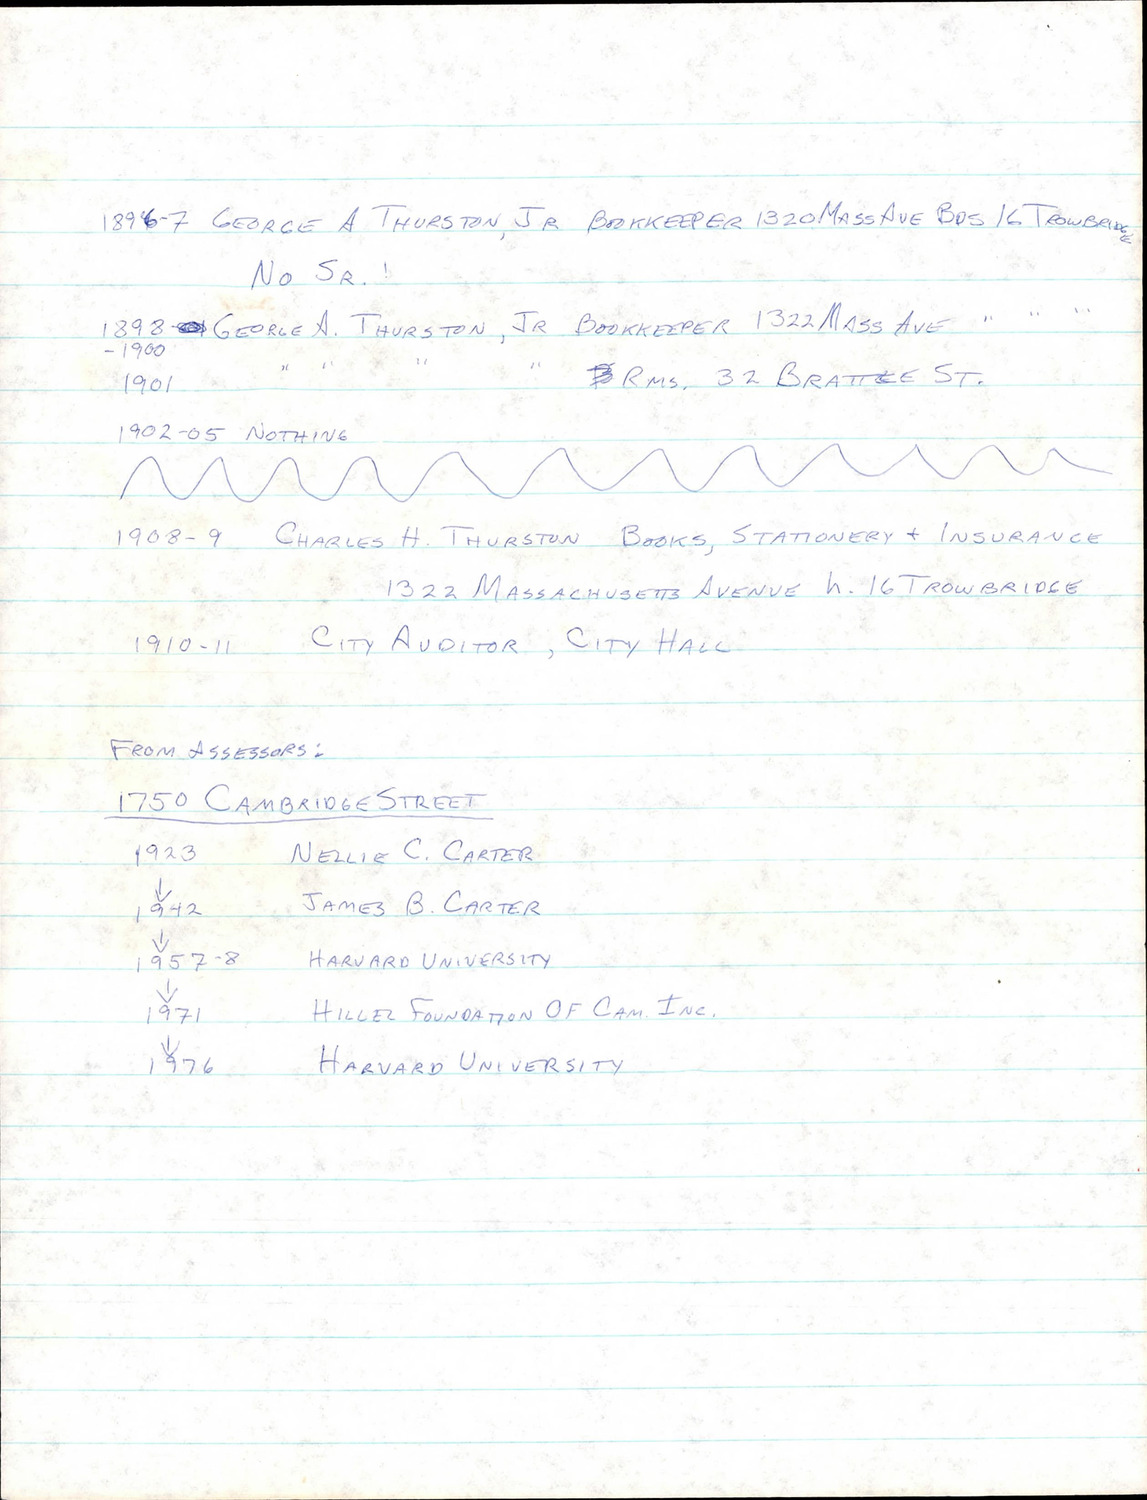 1896-7 George A Thurston, Jr Bookkeeper 1320 Mass Ave Bds 16 Trowbridge
No Sr.!
1898- George A. Thurston, Jr Bookkeeper 1322 Mass Ave " " "
-1900
1901 " " " " Rms. 32 Brattle St.
1902-05 Nothing
1908-9 Charles H. Thurston Books, Stationery + Insurance
1322 Massachusetts Avenue h. 16 Trowbridge
1910-11 City Auditor, City Hall
From Assessors:
1750 Cambridge Street
1923 Nellie C. Carter
↓
1942 James B. Carter
↓
1957-8 Harvard University
↓
1971 Hillel Foundation of Cam. Inc.
↓
1976 Harvard University